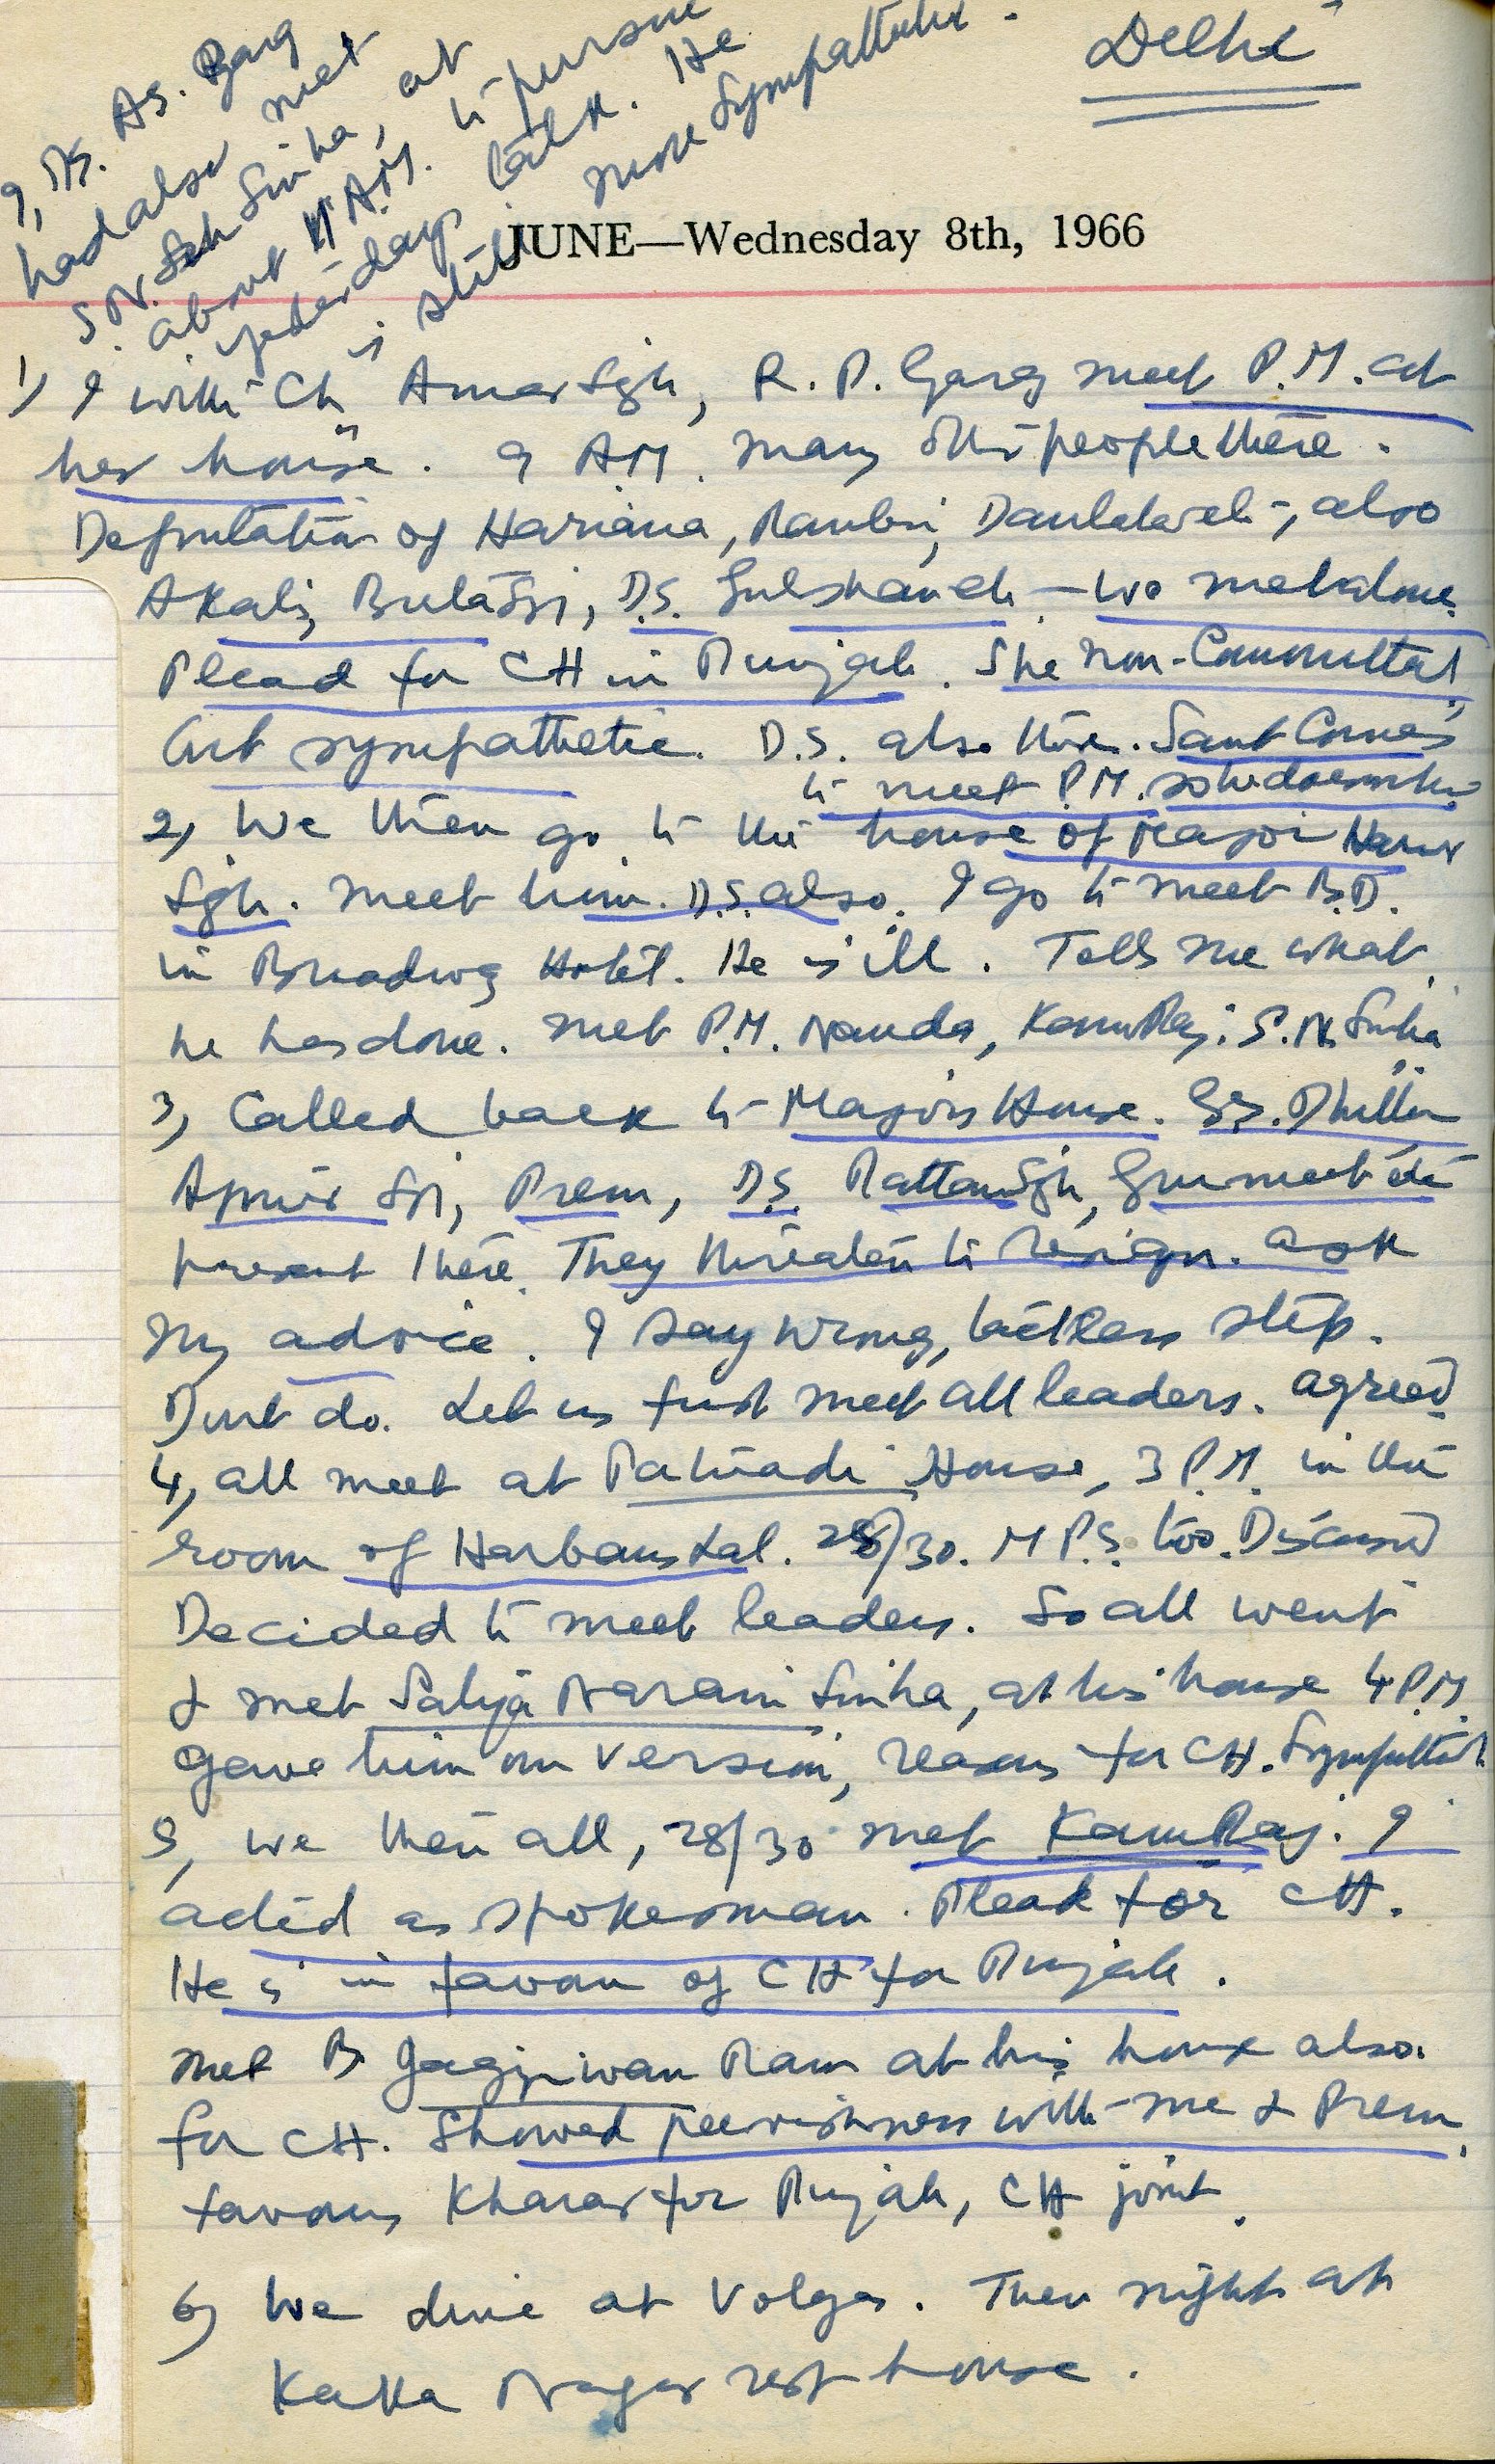 Delhi
9, Ds. As. Garg
had also met
S.N. Sinha, at
about 11 A.M. to pursue
yesterday's talk. He
is still more sympathetic.
JUNE—Wednesday 8th, 1966
1) I with Ch Amar Sgh, R. P. Garg meet P.M. at
her house. 9 AM. many other people there.
Deputation of Hariana, also
Akalis, Buta Sgh, D.S. Gulshan etc - we met alone.
Plead for CH in Punjab. She non-Committal,
but sympathetic. D.S. also there. Sant Comes
to meet P.M. so he does
2) We then go to the house of Major
Sgh. meet him. D.S. also. I go to meet B.D.
in Broadway Hotel. He is ill. Tells me what
he has done. met P.M. Nanda, KamRaj: S.N. Sinha
3) Called back to Majors House. GS. Dhillon
Sgh, Prem, D.S. Rattan Sgh, Gurmeet etc
present there. They threaten to resign. ask
my advice. I say wrong, tactless step.
Dont do. Let us first meet all leaders. agreed
4, all meet at Pataudi House, 3 P.M. in the
room of Harbans Lal. 28/30. M P.S. too. Discussed
Decided to meet leaders. So all went
& met Satya Narain Sinha, at his house 4 P.M.
gave him our version, reasons for CH. Sympathetic
5, we then all, 28/30 met KamRaj. I
acted as spokesman. Plead for CH.
He is in favour of CH for Punjab.
met B Jagjiwan Ram at his house also.
for CH. Showed peevishness with me & Prem,
favours Kharar for Punjab, CH joint.
6) We dine at Volga. Then night at
Kaka Nagar rest house.